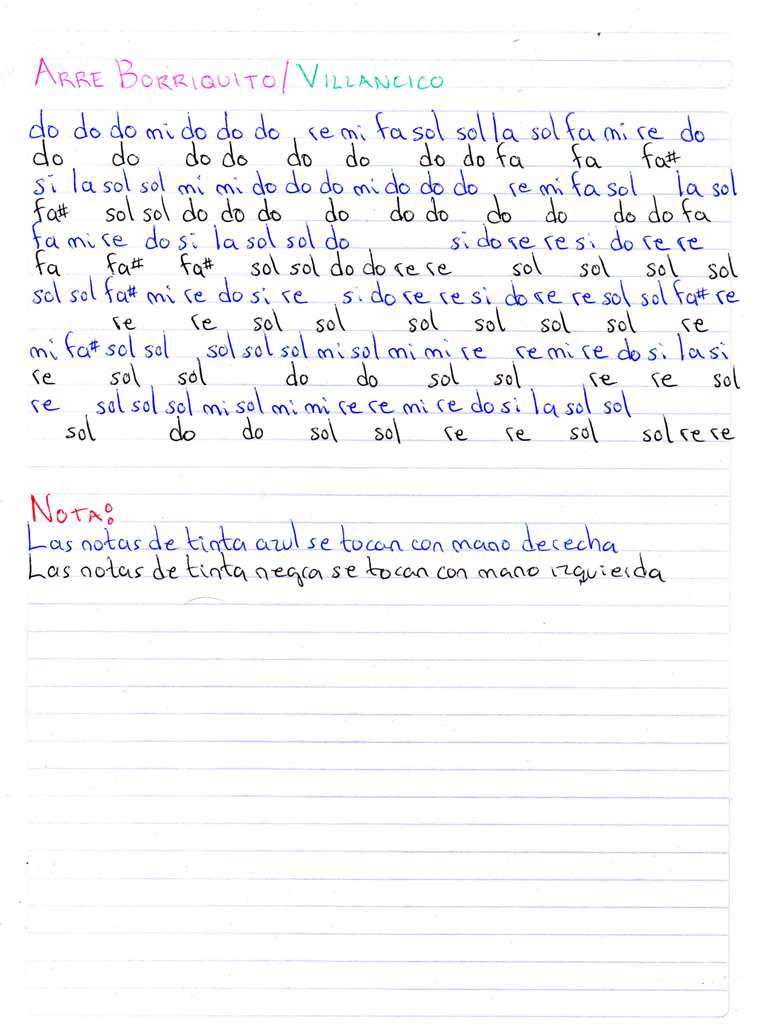 ARRE BORRIQUITO/VILLANCICO
do do do mi do do do, re mi fa sol sol la sol fa mi re do
do do do do do do do do fa fa fa#
si la sol sol mi mi do do do mi do do do, re mi fa sol, la sol
fa# sol sol do do do do do do do do do do fa
fa mi re do si la sol sol do si do re re si do re re
fa fa# fa# sol sol do do re re sol sol sol sol
sol sol fa# mi re do si re, si do re re si do re re sol sol fa# re
re re sol sol sol sol sol sol re
mi fa# sol sol, sol sol sol mi sol mi mi re re mi re do si la si
re sol sol do do sol sol re re sol
re, sol sol sol mi sol mi mi re re mi re do si la sol sol
sol do do sol sol re re sol sol re re
NOTA:
Las notas de tinta azul se tocan con mano derecha
Las notas de tinta negra se tocan con mano izquierda